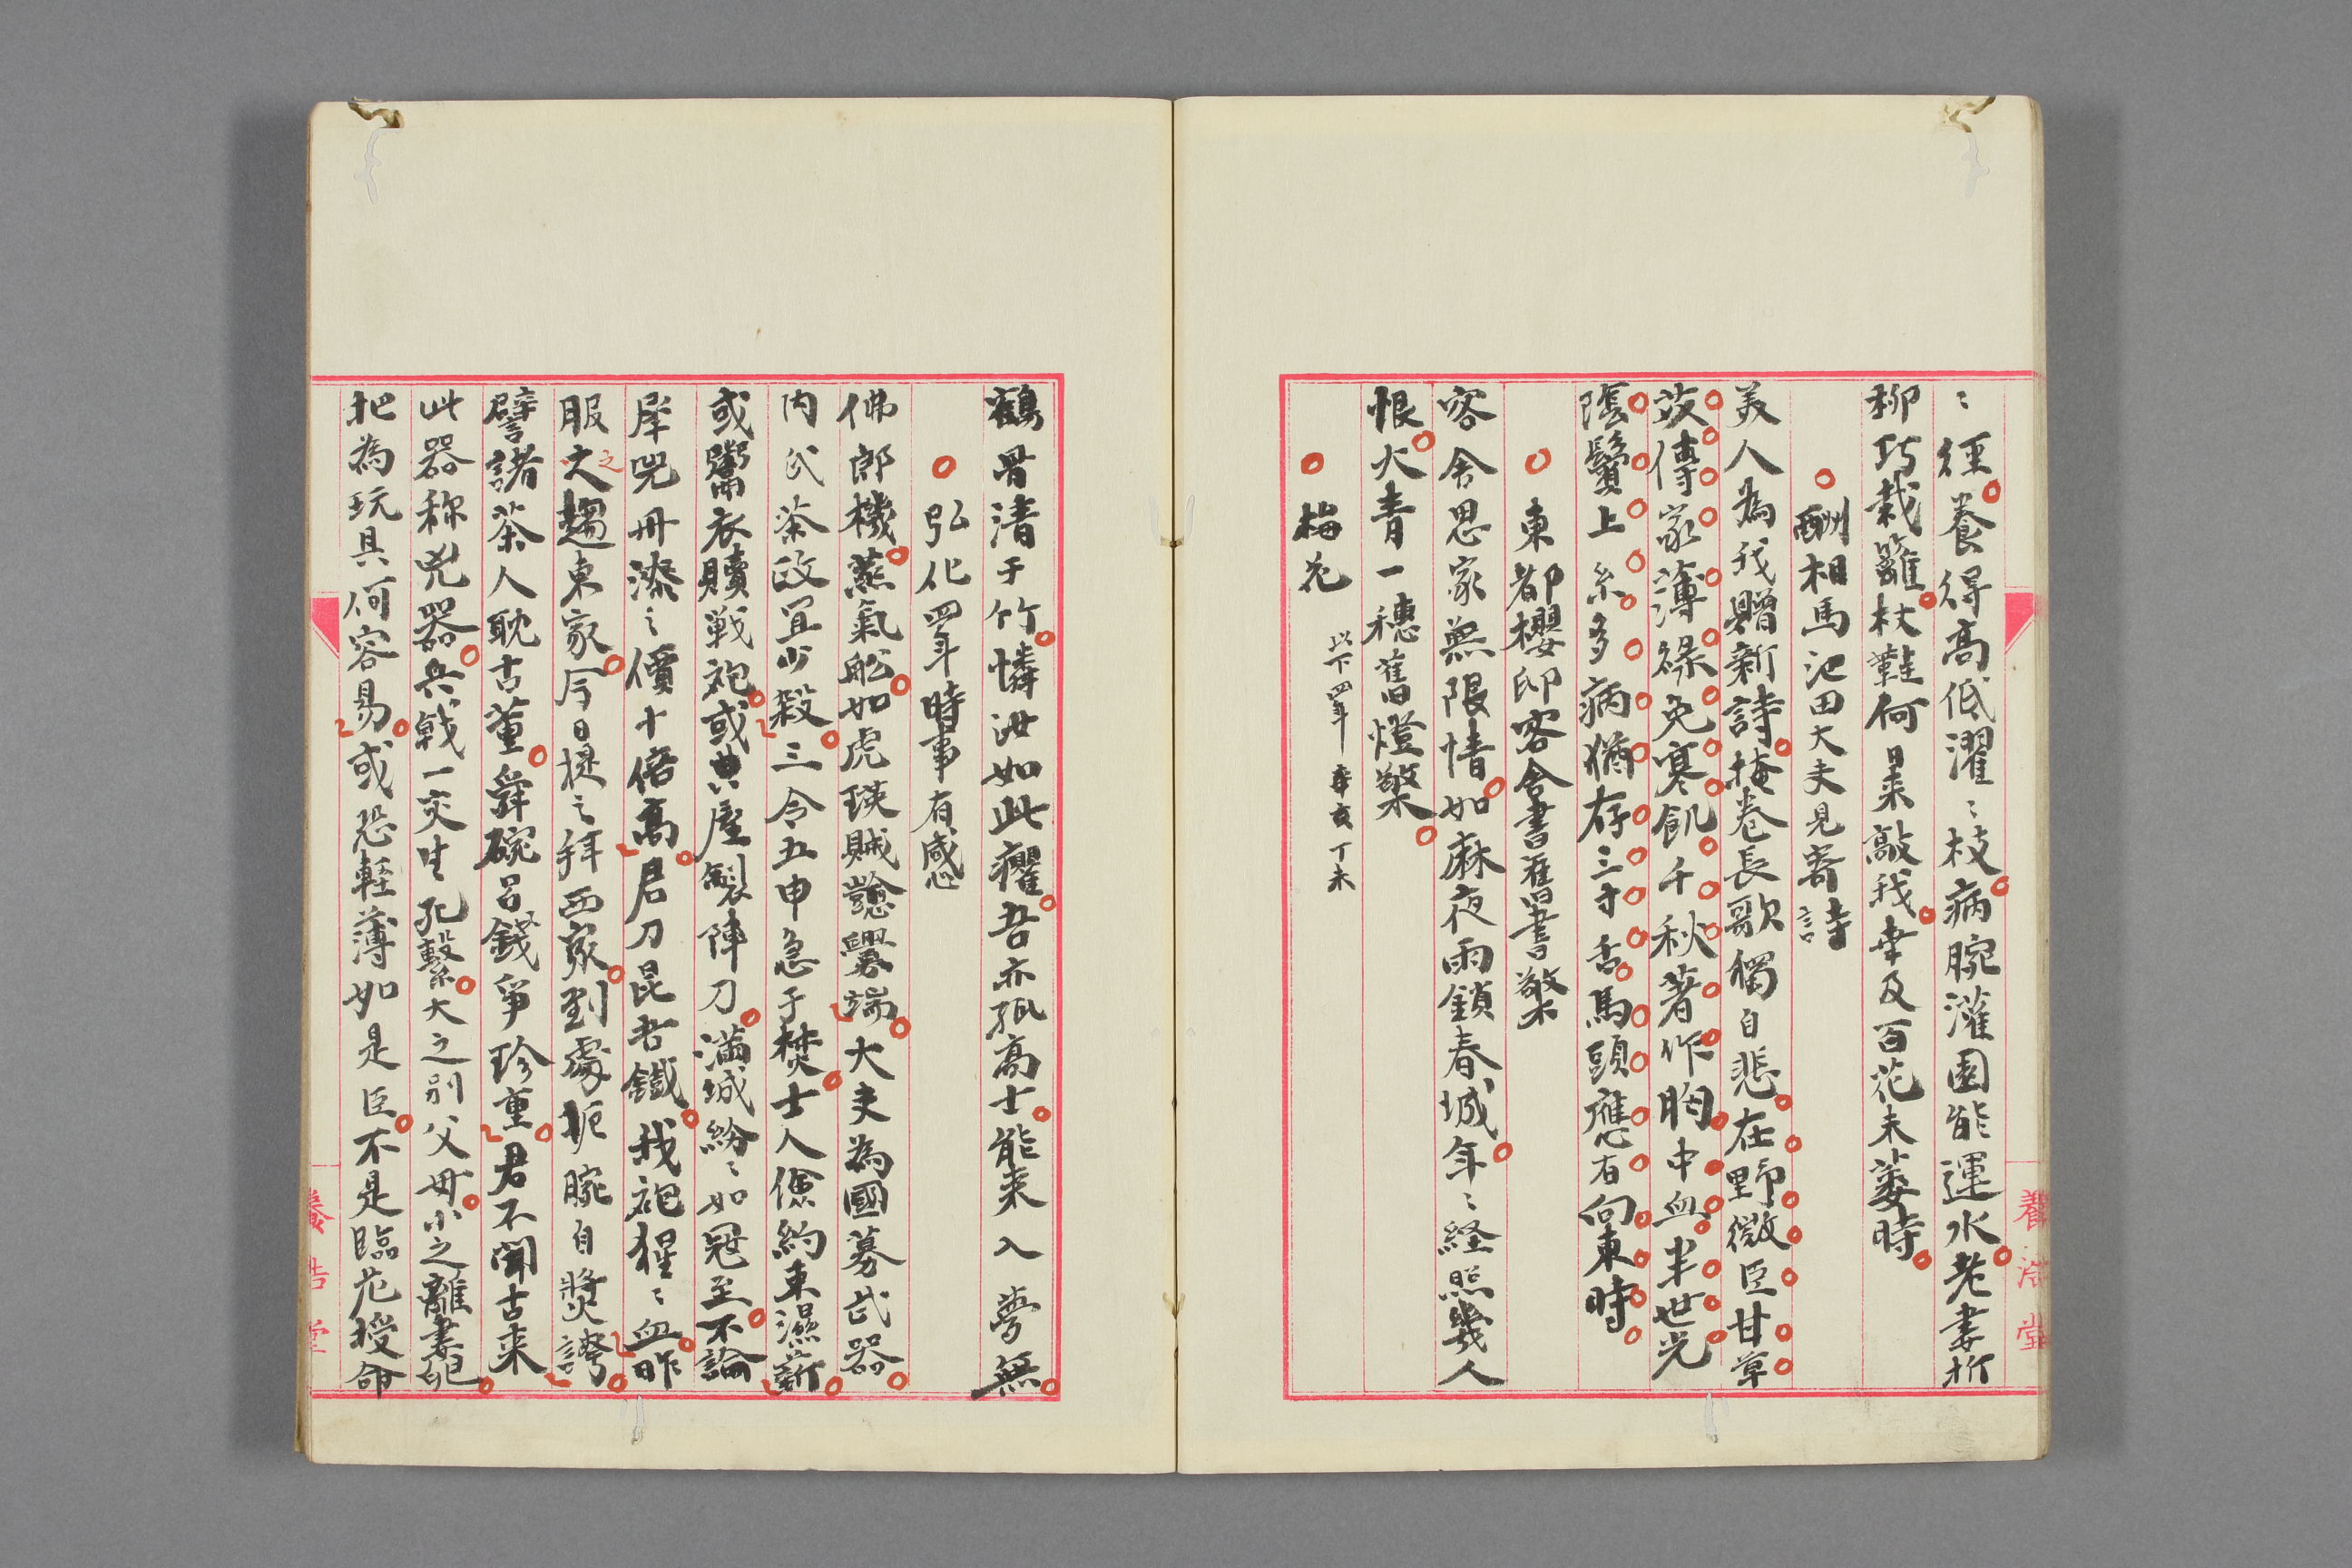 〻徑養得高低濯〻枝病腕灌園能運水老妻折
柳巧栽籬杖鞋何日来敲我幸及百花未萎時
酬相馬池田大夫見寄詩
美人為我贈新詩掩巻長歌獨自悲在野微臣甘草
莽傳家薄禄免寒飢千秋著作胸中血半世光
陰鬢上糸多病猶存三寸舌馬頭應有向東時
東都櫻邸客舎書舊書檠
客舎思家無限情如麻夜雨鎖春城年〻経照幾人
恨火青一穗舊燈檠
梅花 以下四年 辛亥 丁未
鶴骨清于竹憐汝如此癯吾亦孤高士能来入夢無
弘化四年時事有感
佛郎機蒸氣舩如虎瑛賊 釁端大夫為國募武器
内氏茶政宜少殺三令五申急于焚士人儉約束濕薪
或鬻衣贖戦袍或典屋製陣刀満城紛〻如冦至不論
犀兕毋漆〻價十倍高君刀昆吾鐵我袍猩〻血昨
服之趨東家今日提之拜西家到處扼腕自奬誇
譬諸茶人耽古董舜碗呂錢爭珍重君不聞古来
此器称兇器兵戟一交生死繫大之別父母小之離妻児
把為玩具何容易或恐輕薄如是臣不是臨危授命
養浩堂
養浩堂